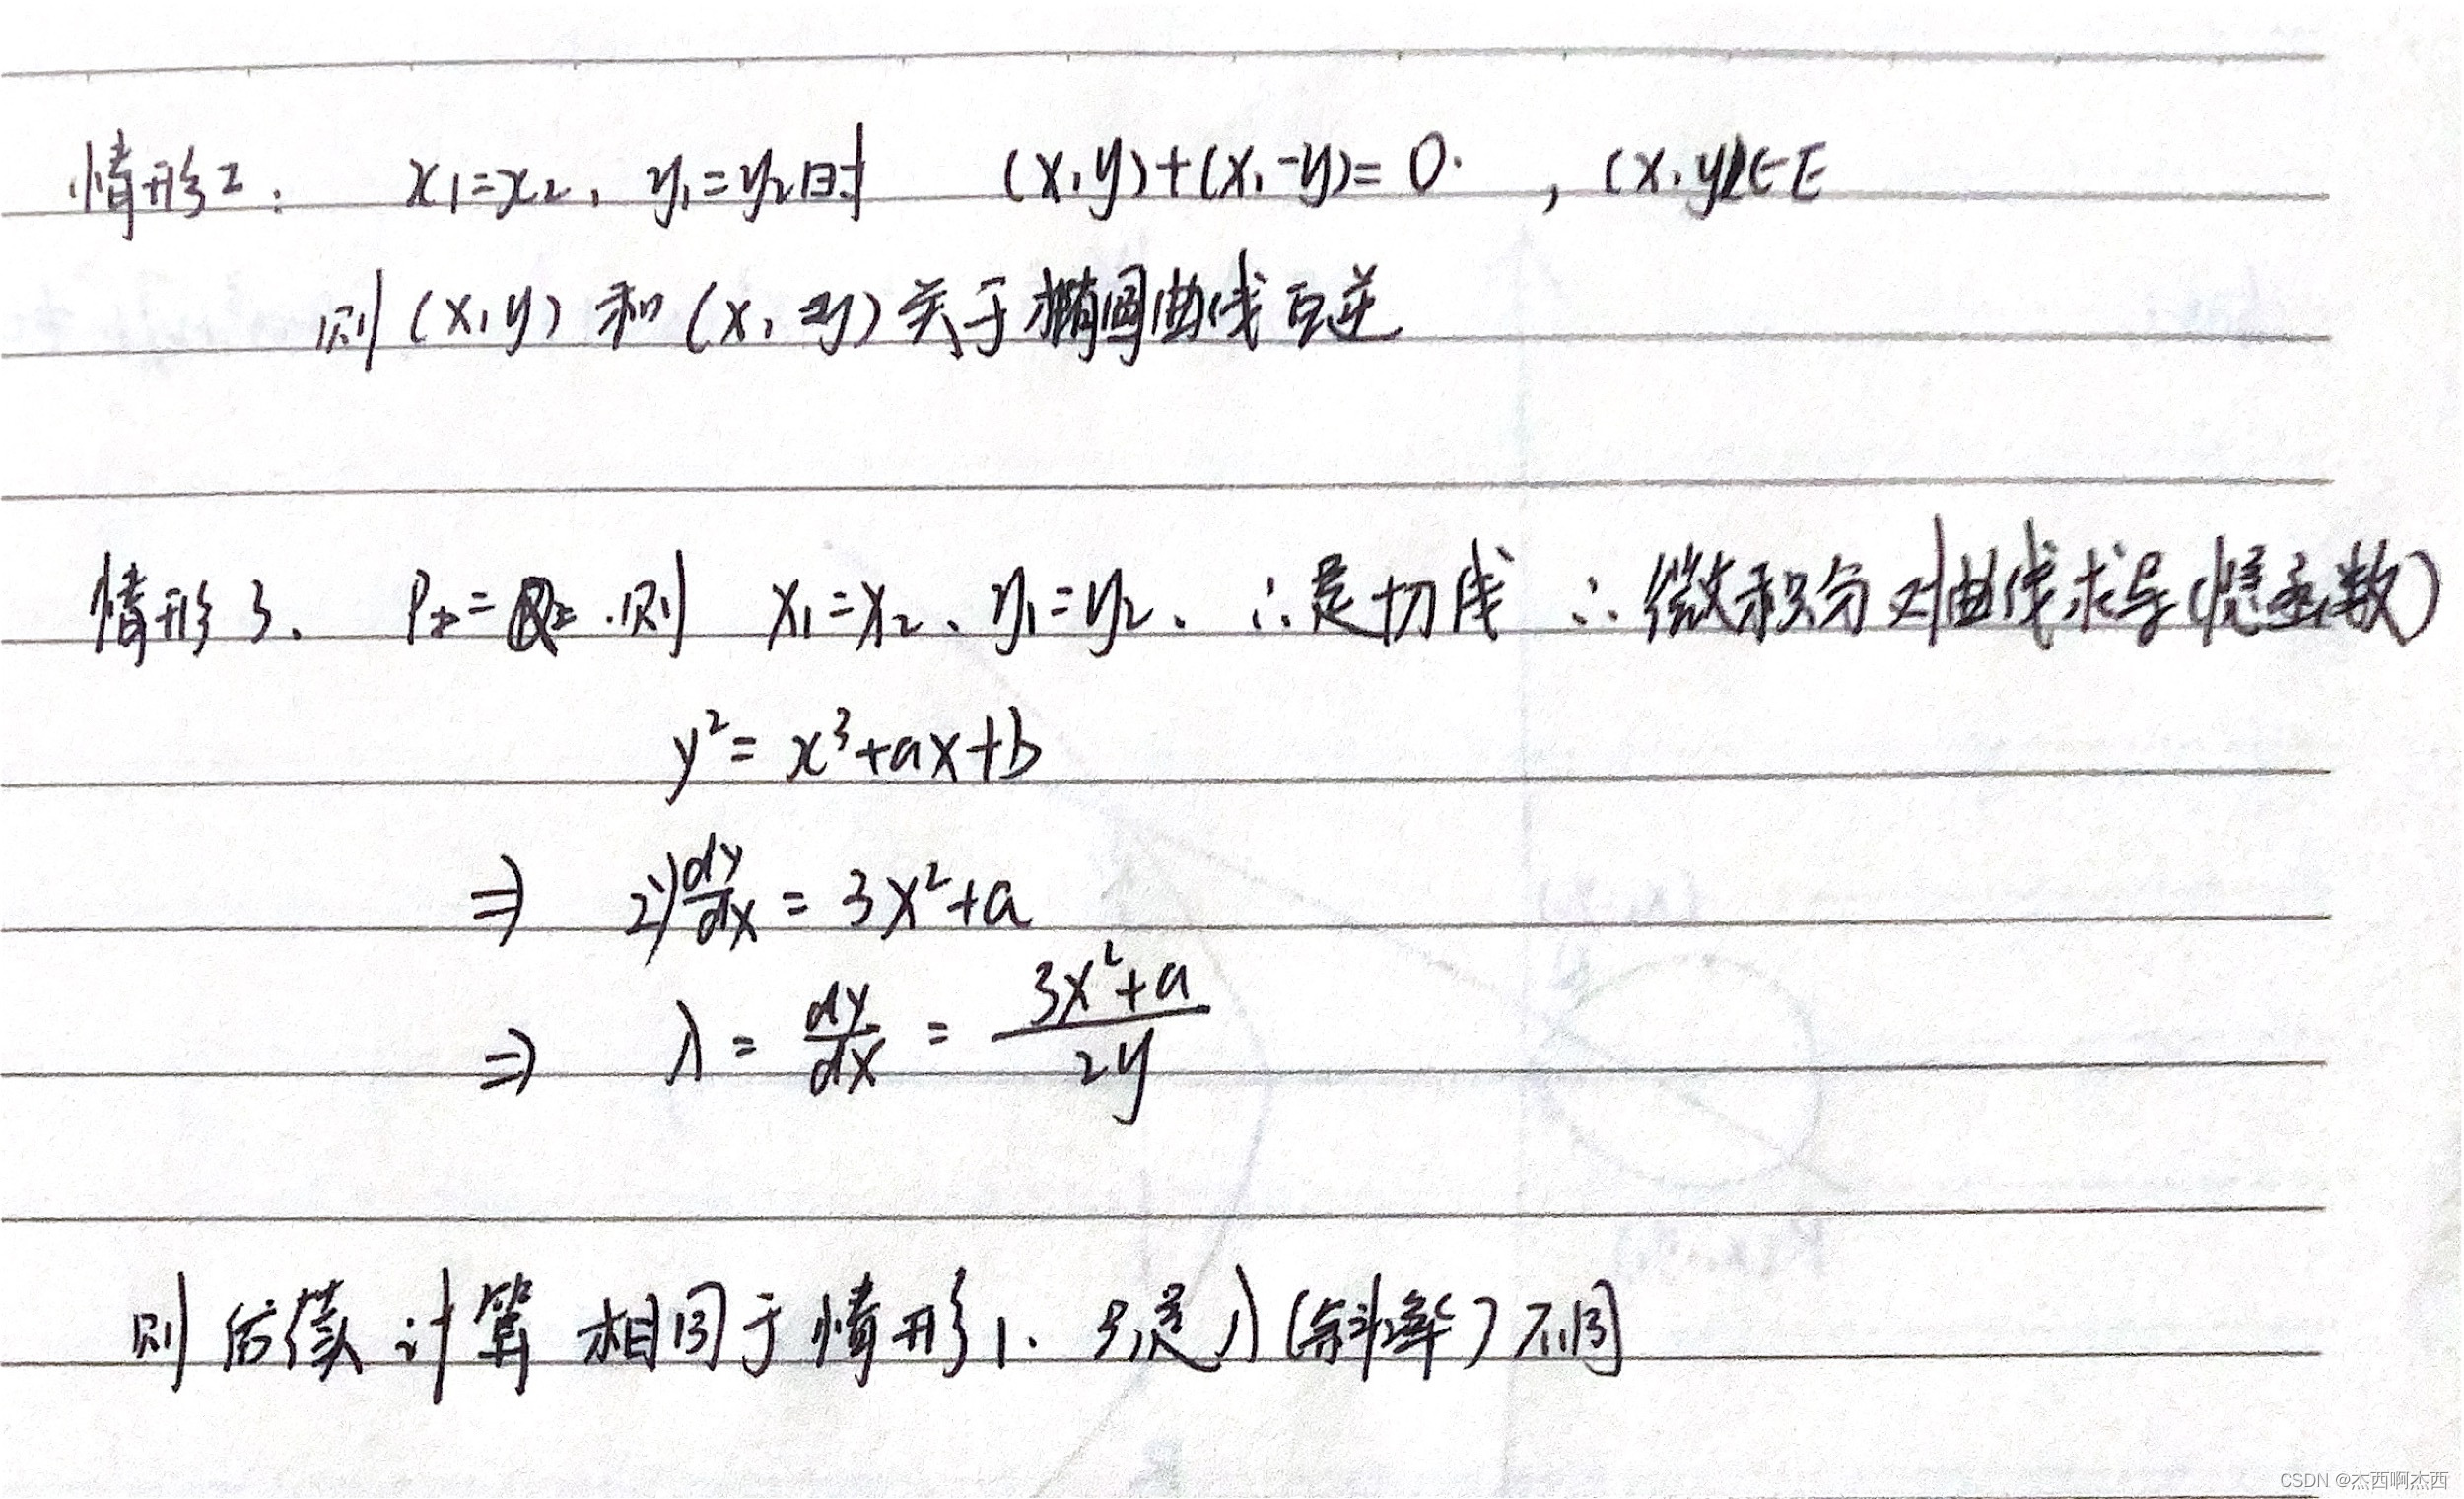 情形2: x₁=x₂, y₁=y₂时 (x,y)+(x,-y)=0. , (x,y)∈E
则(x,y)和(x,-y)关于椭圆曲线互逆
情形3. P=Q.则 x₁=x₂、y₁=y₂、∴是切线 ∴微积分对曲线求导(隐函数)
y²=x³+ax+b
⇒ 2y dy/dx = 3x²+a
⇒ λ = dy/dx = (3x²+a)/2y
则后续计算相同于情形1. 只是λ(斜率)不同
CSDN @杰西啊杰西